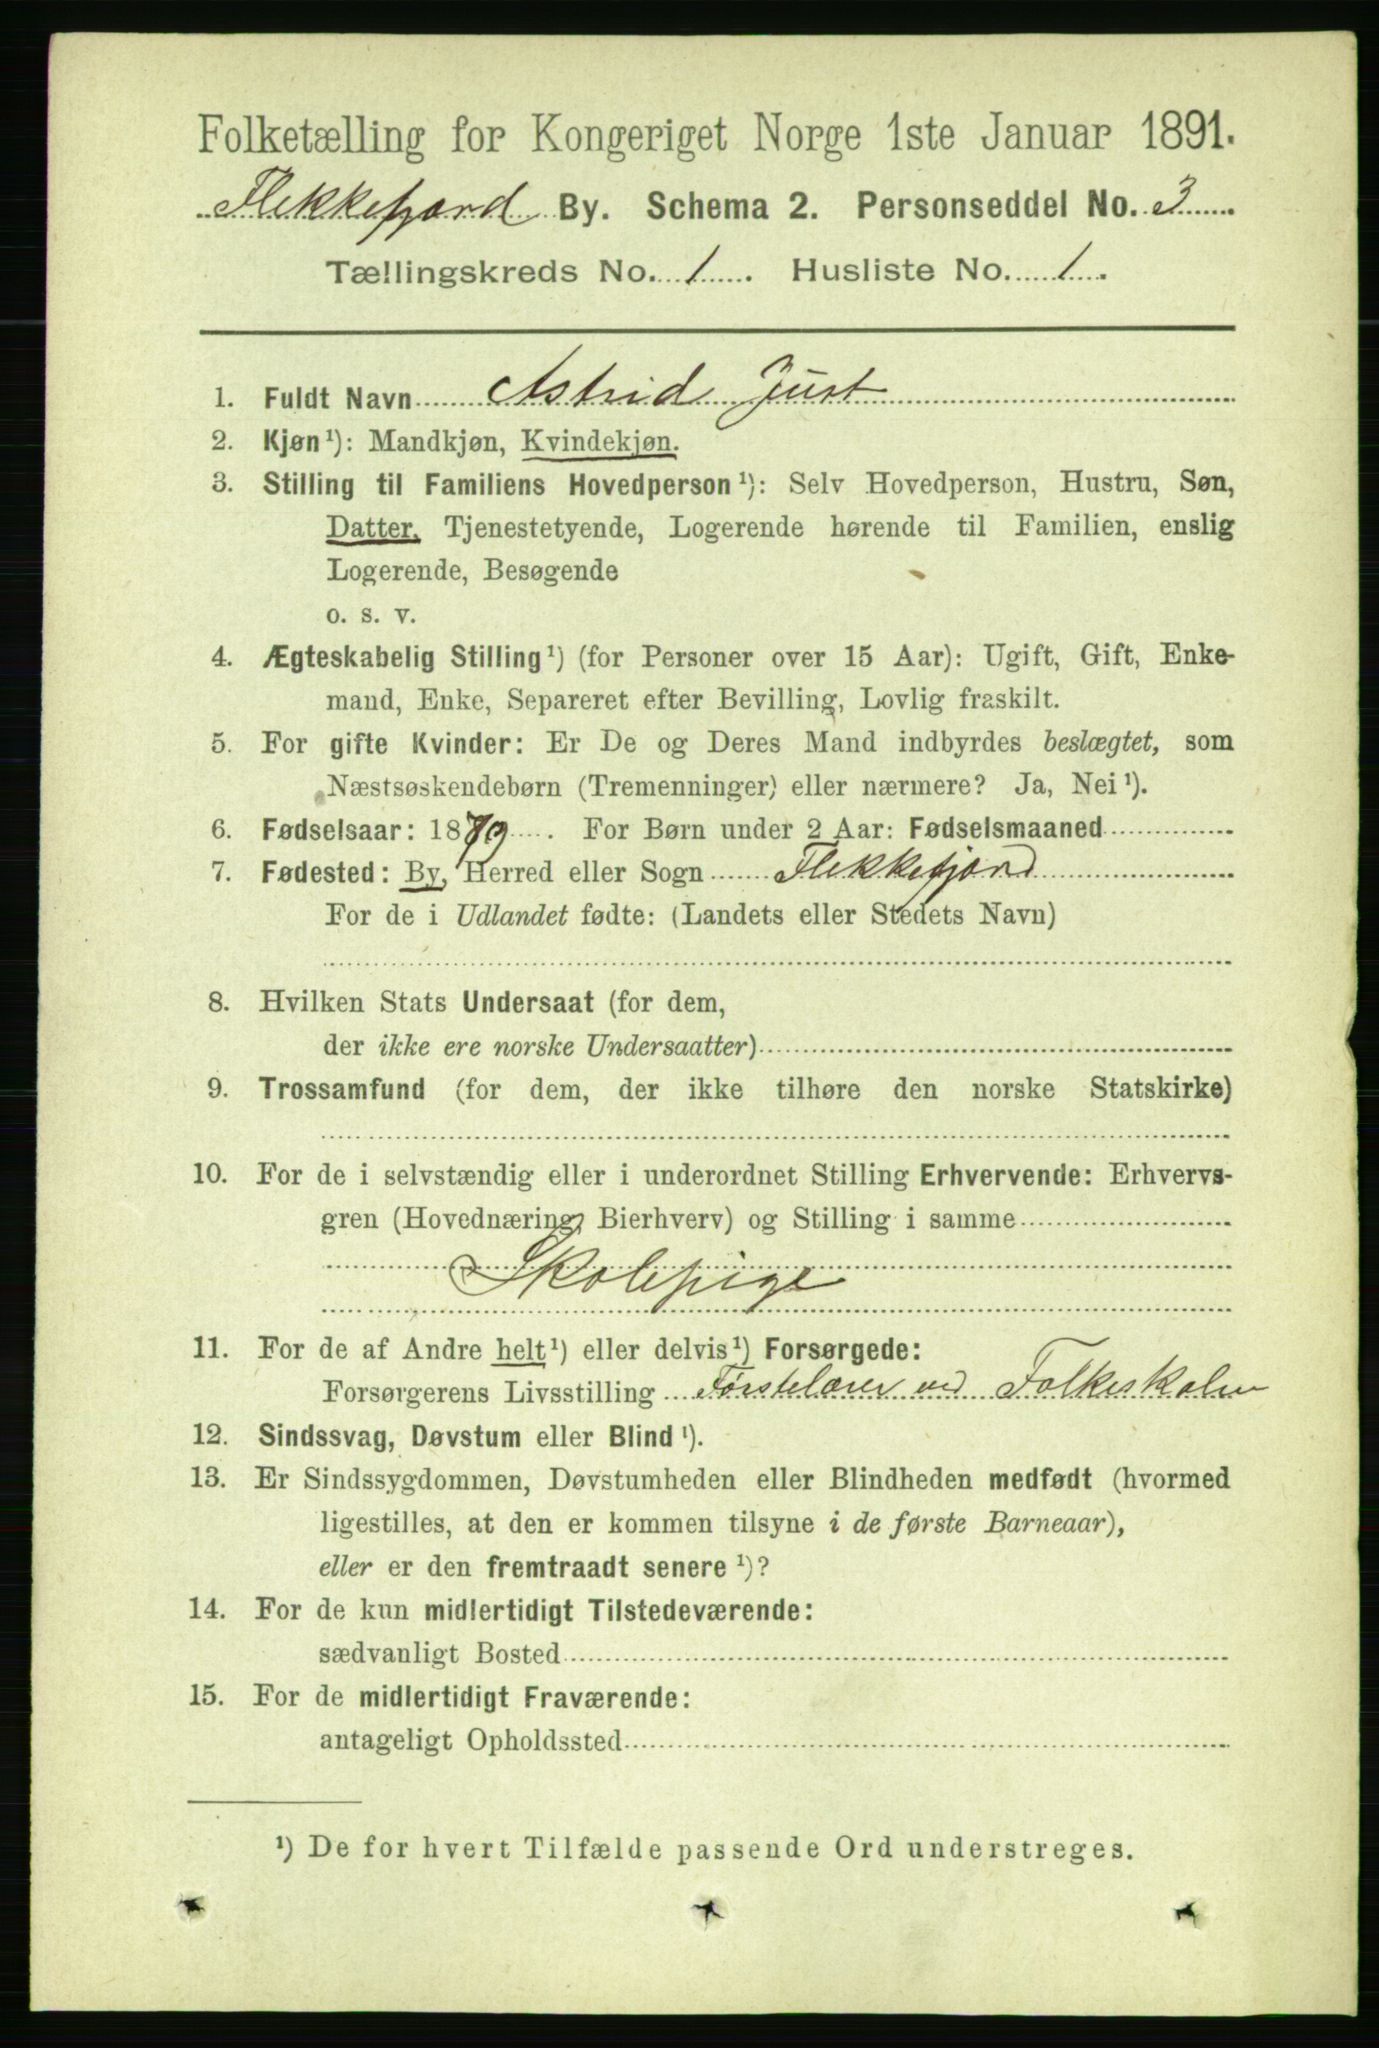 Folketælling for Kongeriget Norge 1ste Januar 1891.
Flekkefjord By. Schema 2. Personseddel No. 3
Tællingskreds No. 1. Husliste No. 1.
1. Fuldt Navn Astrid Just
2. Kjøn ¹): Mandkjøn, Kvindekjøn.
3. Stilling til Familiens Hovedperson ¹): Selv Hovedperson, Hustru, Søn,
Datter, Tjenestetyende, Logerende hørende til Familien, enslig
Logerende, Besøgende
o. s. v.
4. Ægteskabelig Stilling ¹) (for Personer over 15 Aar): Ugift, Gift, Enke-
mand, Enke, Separeret efter Bevilling, Lovlig fraskilt.
5. For gifte Kvinder: Er De og Deres Mand indbyrdes beslægtet, som
Næstsøskendebørn (Tremenninger) eller nærmere? Ja, Nei ¹).
6. Fødselsaar: 1879. For Børn under 2 Aar: Fødselsmaaned
7. Fødested: By, Herred eller Sogn Flekkefjord
For de i Udlandet fødte: (Landets eller Stedets Navn)
8. Hvilken Stats Undersaat (for dem,
der ikke ere norske Undersaatter)
9. Trossamfund (for dem, der ikke tilhøre den norske Statskirke)
10. For de i selvstændig eller i underordnet Stilling Erhvervende: Erhvervs-
gren (Hovednæring, Bierhverv) og Stilling i samme
Skolepige
11. For de af Andre helt ¹) eller delvis ¹) Forsørgede:
Forsørgerens Livsstilling Førstelærer ved Folkeskolen
12. Sindssvag, Døvstum eller Blind ¹).
13. Er Sindssygdommen, Døvstumheden eller Blindheden medfødt (hvormed
ligestilles, at den er kommen tilsyne i de første Barneaar),
eller er den fremtraadt senere ¹)?
14. For de kun midlertidigt Tilstedeværende:
sædvanligt Bosted
15. For de midlertidigt Fraværende:
antageligt Opholdssted
¹) De for hvert Tilfælde passende Ord understreges.